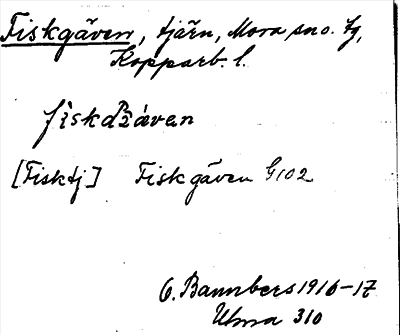 Fiskgäven, tjärn, Mora sno. tg,
Kopparb. l.
[Fisktj] Fiskgäven G102
O. Bannbers 1916-17
Ulma 310